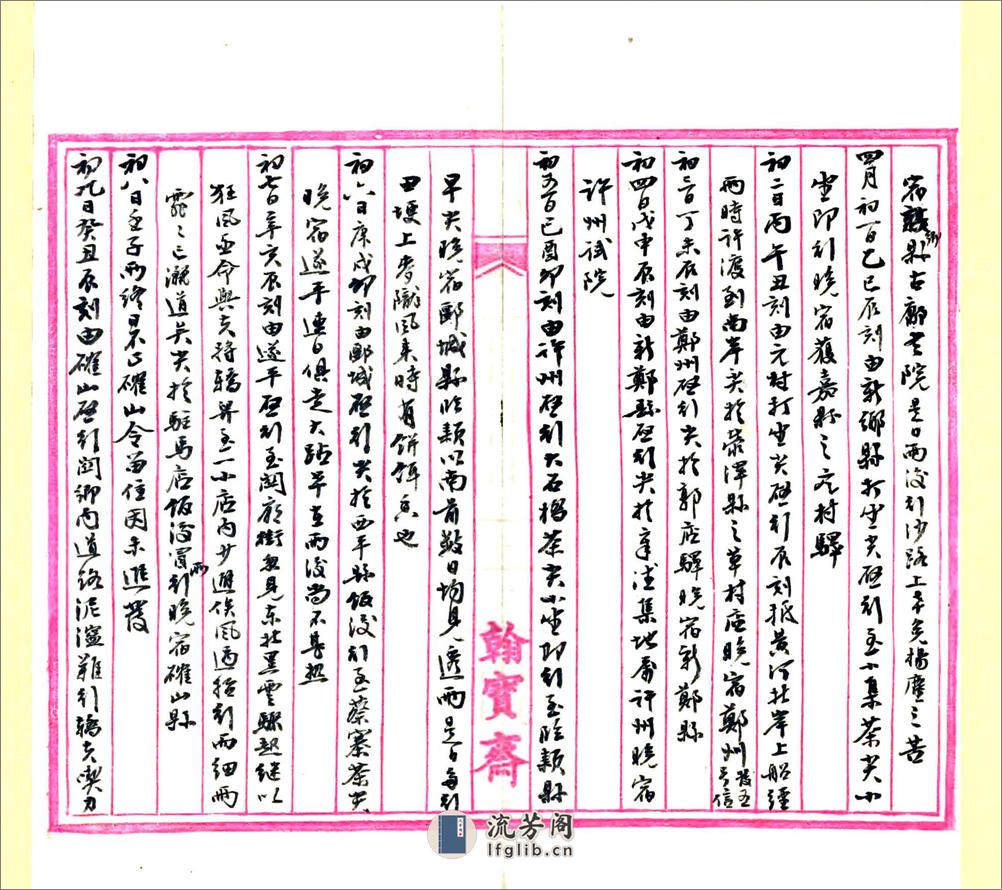 宿新縣古鄘書院是日雨後行沙路上幸免揚塵之苦
四月初一日乙巳辰刻由新鄉縣打坐尖啟行至小集茶尖小
坐即行晚宿獲嘉縣之亢村驛
初二日丙午丑刻由亢村打坐尖啟行辰刻抵黃河北岸上船經
兩時許渡到南岸尖於滎澤縣之草村店晚宿鄭州發五号信
初三日丁未辰刻由鄭州啟行尖於郭店驛晚宿新鄭縣
初四日戊申辰刻由新鄭縣啟行尖於石固集地屬許州晚宿
許州試院
初五日己酉卯刻由許州啟行大石橋茶尖小坐即行至臨潁縣
早尖晚宿郾城縣臨潁以南前數日均見透雨是日每行
田埂上麥隴風來時有餅餌香也
初六日庚戌卯刻由郾城啟行尖於西平縣飯後行至蔡寨茶尖
晚宿遂平連日俱走大站幸在雨後尚不甚熱
初七日辛亥辰刻由遂平啟行至關廟街忽見東北黑雲驟起繼以
狂風亟命輿夫將轎舁至一小店內少避俟風過始行而細雨
霏霏已灑道矣尖於駐馬店飯後冒雨行晚宿確山縣
初八日壬子雨終日不止確山令留住因未進發
初九日癸丑辰刻由確山啟行關鄉內道路泥濘難行轎夫喫力
翰寶齋
流芳阁
lfglib.cn